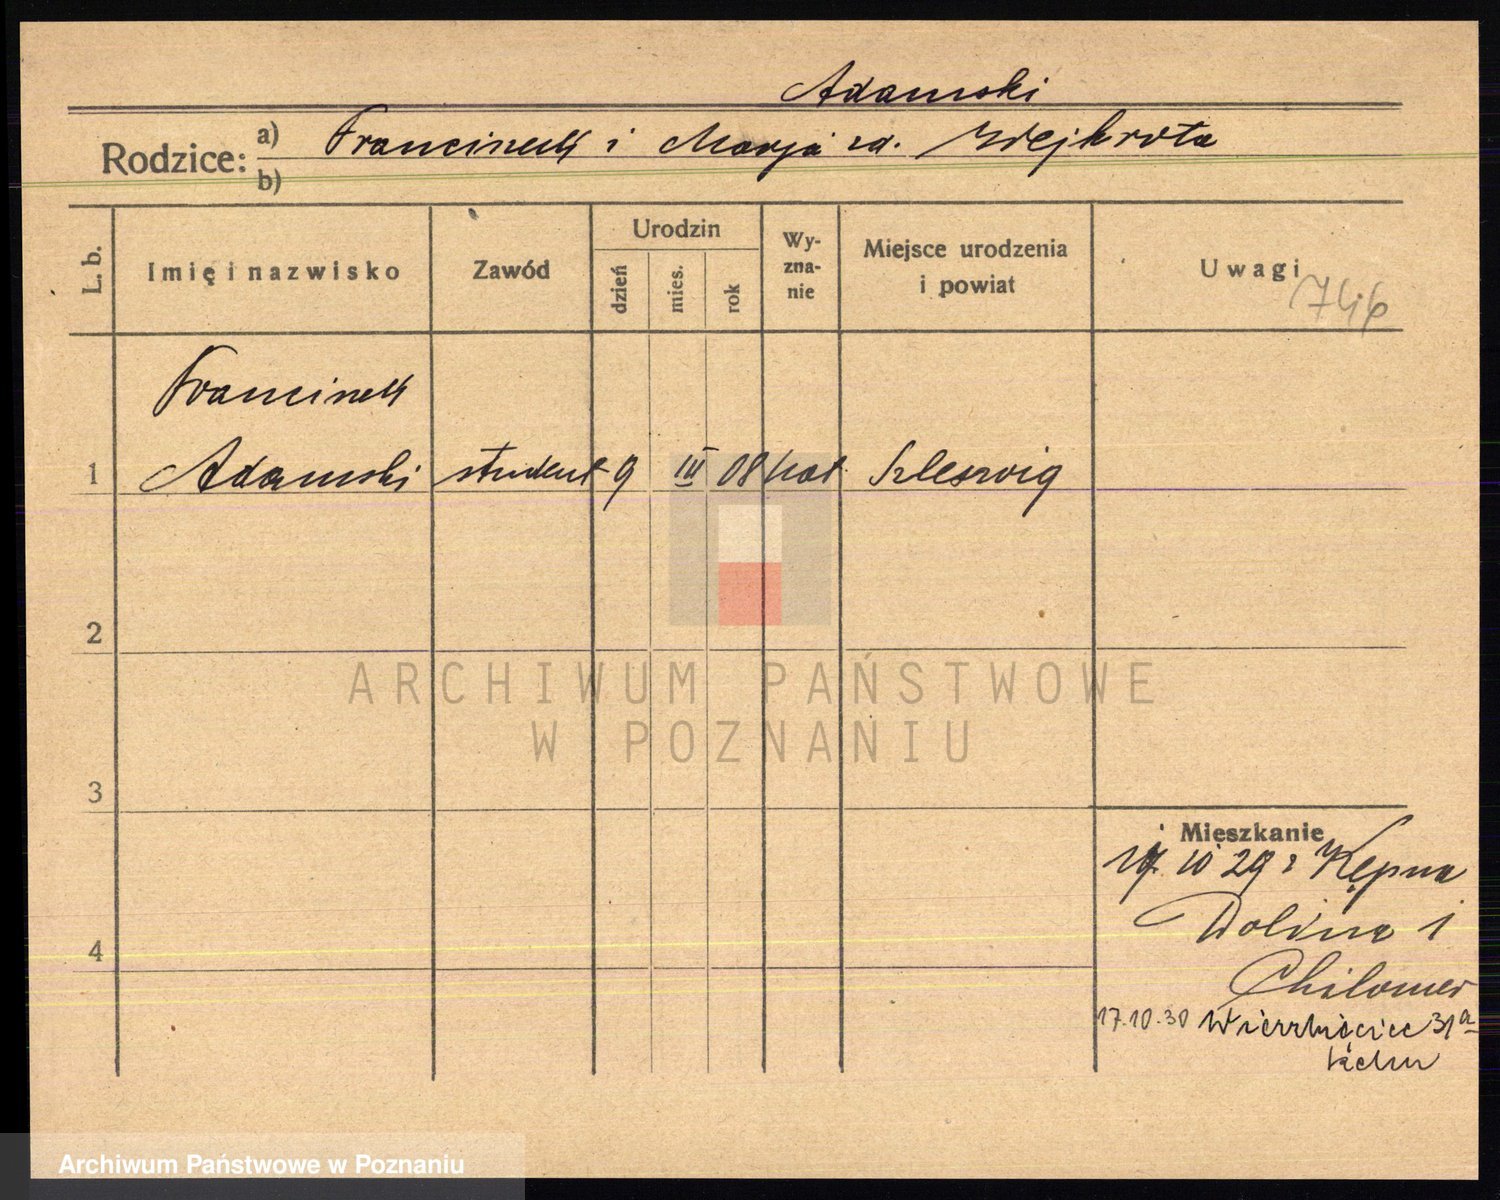 Adamski
Rodzice:
a) Franciszek i Marja zd. Wejkrota
b)
L. b.
Imię i nazwisko
Zawód
Urodzin
dzień
mies.
rok
Wy-
zna-
nie
Miejsce urodzenia
i powiat
Uwagi
746
Franciszek
1 Adamski student 9 III 08 kat. Szleswig
2
3
4
ARCHIWUM PAŃSTWOWE
W POZNANIU
Mieszkanie
10 29 z Kępna
Dolina 1
17.10.30 Wierzbięcice 31a
Archiwum Państwowe w Poznaniu